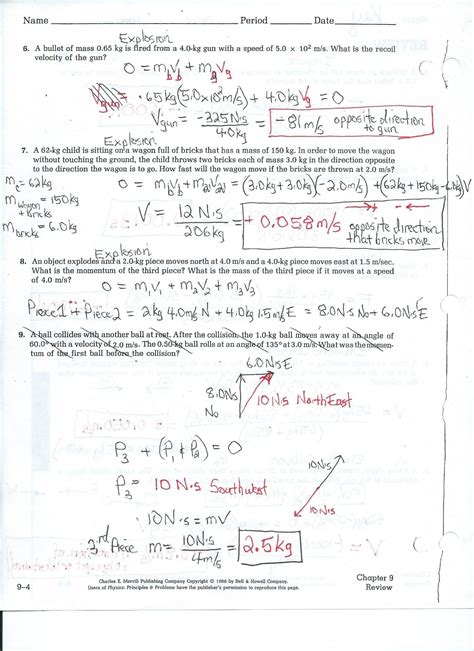 Name Period Date
Explosion
6. A bullet of mass 0.65 kg is fired from a 4.0-kg gun with a speed of 5.0 × 10² m/s. What is the recoil
velocity of the gun?
0 = m_b V_b + m_g V_g
.65kg(5.0x10² m/s) + 4.0kg V_g = 0
V_gun = -325N·s / 4.0kg = -81 m/s opposite direction to gun
Explosion
7. A 62-kg child is sitting on a wagon full of bricks that has a mass of 150 kg. In order to move the wagon
without touching the ground, the child throws two bricks each of mass 3.0 kg in the direction opposite
to the direction the wagon is to go. How fast will the wagon move if the bricks are thrown at 2.0 m/s?
m_c = 62kg
0 = m_1V_1 + m_2V_2 = (3.0kg+3.0kg)(-2.0m/s) + (62kg+150kg-6.0kg)V
m wagon + bricks = 150kg
m bricks = 6.0kg
V = 12 N·s / 206kg = + 0.058 m/s opposite direction that bricks move
Explosion
8. An object explodes and a 2.0-kg piece moves north at 4.0 m/s and a 4.0-kg piece moves east at 1.5 m/sec.
What is the momentum of the third piece? What is the mass of the third piece if it moves at a speed
of 4.0 m/s?
0 = m_1V_1 + m_2V_2 + m_3V_3
Piece1 + Piece2 = 2kg 4.0m/s N + 4.0kg 1.5m/s E = 8.0N·s No + 6.0N·s E
9. A ball collides with another ball at rest. After the collision, the 1.0-kg ball moves away at an angle of
60.0° with a velocity of 2.0 m/s. The 0.50-kg ball rolls at an angle of 135° at 3.0 m/s. What was the momen-
tum of the first ball before the collision?
6.0N·s E
8.0N·s No
10N·s NorthEast
P_3 + (P_1 & P_2) = 0
10N·s
P_3 = 10 N·s Southwest
10N·s
10N·s = mV
3rd Piece m = 10N·s / 4m/s = 2.5kg
Charles E. Merrill Publishing Company Copyright © 1986 by Bell & Howell Company.
Users of Physics: Principles & Problems have the publisher's permission to reproduce this page.
9-4
Chapter 9
Review